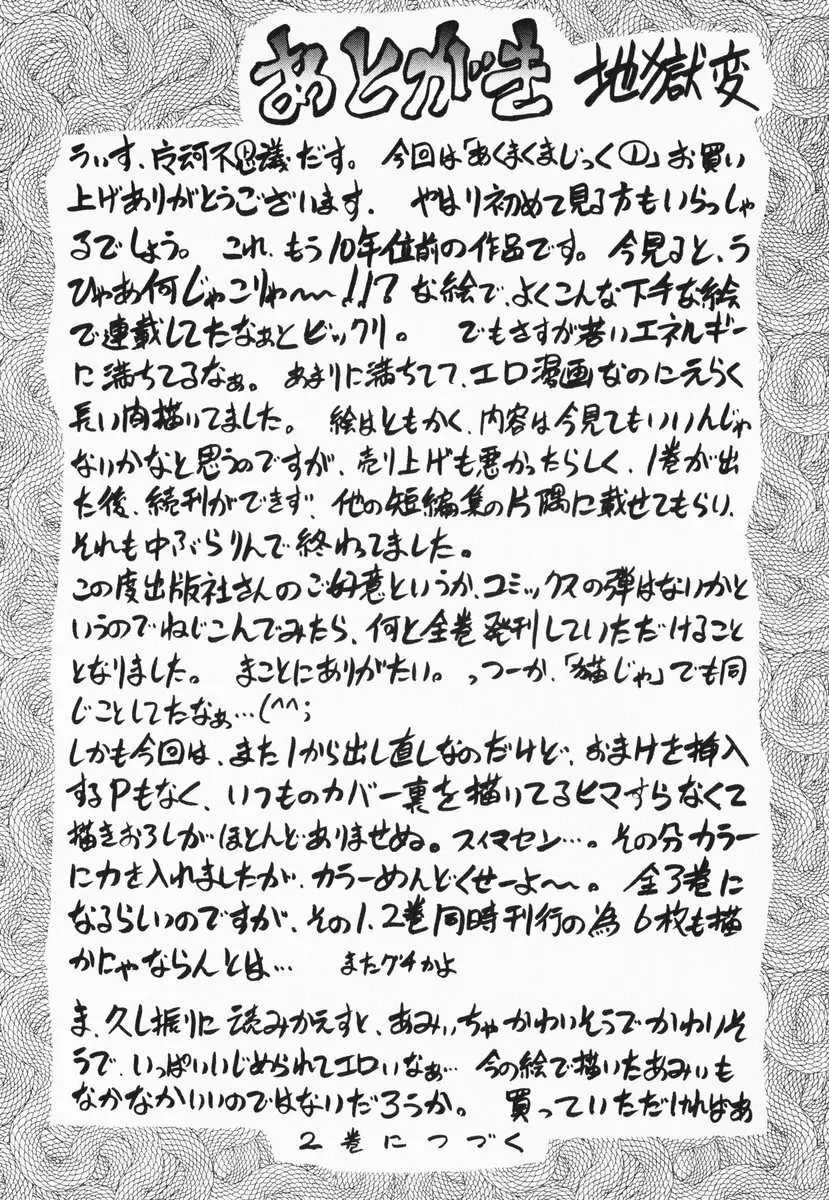 あとがき 地獄変
うぃす、向河不思議だす。 今回は「あくまくまじっく①」お買い
上げありがとうございます. やはり初めて見る方もいらっしゃ
るでしょう。 これ、もう10年位前の作品です。今見ると、う
ひゃあ何じゃこりゃ〜〜!!?な絵で、よくこんな下手な絵
で連載してたなぁとビックリ。 でもさすが若いエネルギー
に満ちてるなぁ。あまりに満ちてて、エロ漫画なのにえらく
長い肉描いてました。 絵はともかく、内容は今見てもいいんじゃ
ないかなと思うのですが、売り上げも悪かったらしく、1巻が出
た後、続刊ができず、他の短編集の片隅に載せてもらい、
それも中ぶらりんで終わってました。
この度出版社さんのご好意というか、コミックスの弾はないかと
いうのでねじこんでみたら、何と全巻発刊していただけること
となりました。 まことにありがたい。っつーか、「猫じゃ」でも同
じことしてたなぁ…(^^;
しかも今回は、また1から出し直しなのだけど、おまけを挿入
するPもなく、いつものカバー裏を描いてるヒマすらなくて
描きおろしがほとんどありませぬ。スイマセン…。その分カラー
に力を入れましたが、カラーめんどくせーよ〜〜。 全3巻に
なるらしいのですが、その1、2巻同時刊行の為6枚も描
かにゃならんとは… またグチかよ
ま、久し振りに読みかえすと、あみぃちゃかわいそうでかわいそ
うで、いっぱいいじめられてエロいなぁ… 今の絵で描いたあみぃも
なかなかいいのではないだろうか。 買っていただければあ
2巻につづく